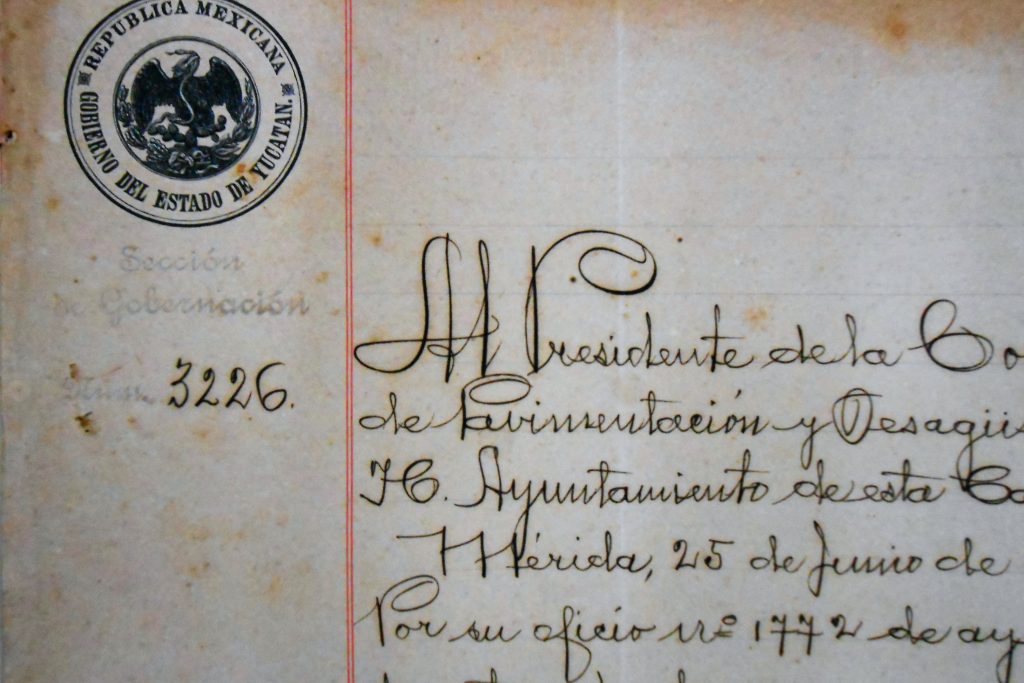 REPUBLICA MEXICANA
GOBIERNO DEL ESTADO DE YUCATAN.
Sección
de Gobernación
Núm. 3226.
Al Presidente de la Co
de Pavimentación y Desagüe
H. Ayuntamiento de esta Ca
Mérida, 25 de Junio de
Por su oficio nº 1772 de ay